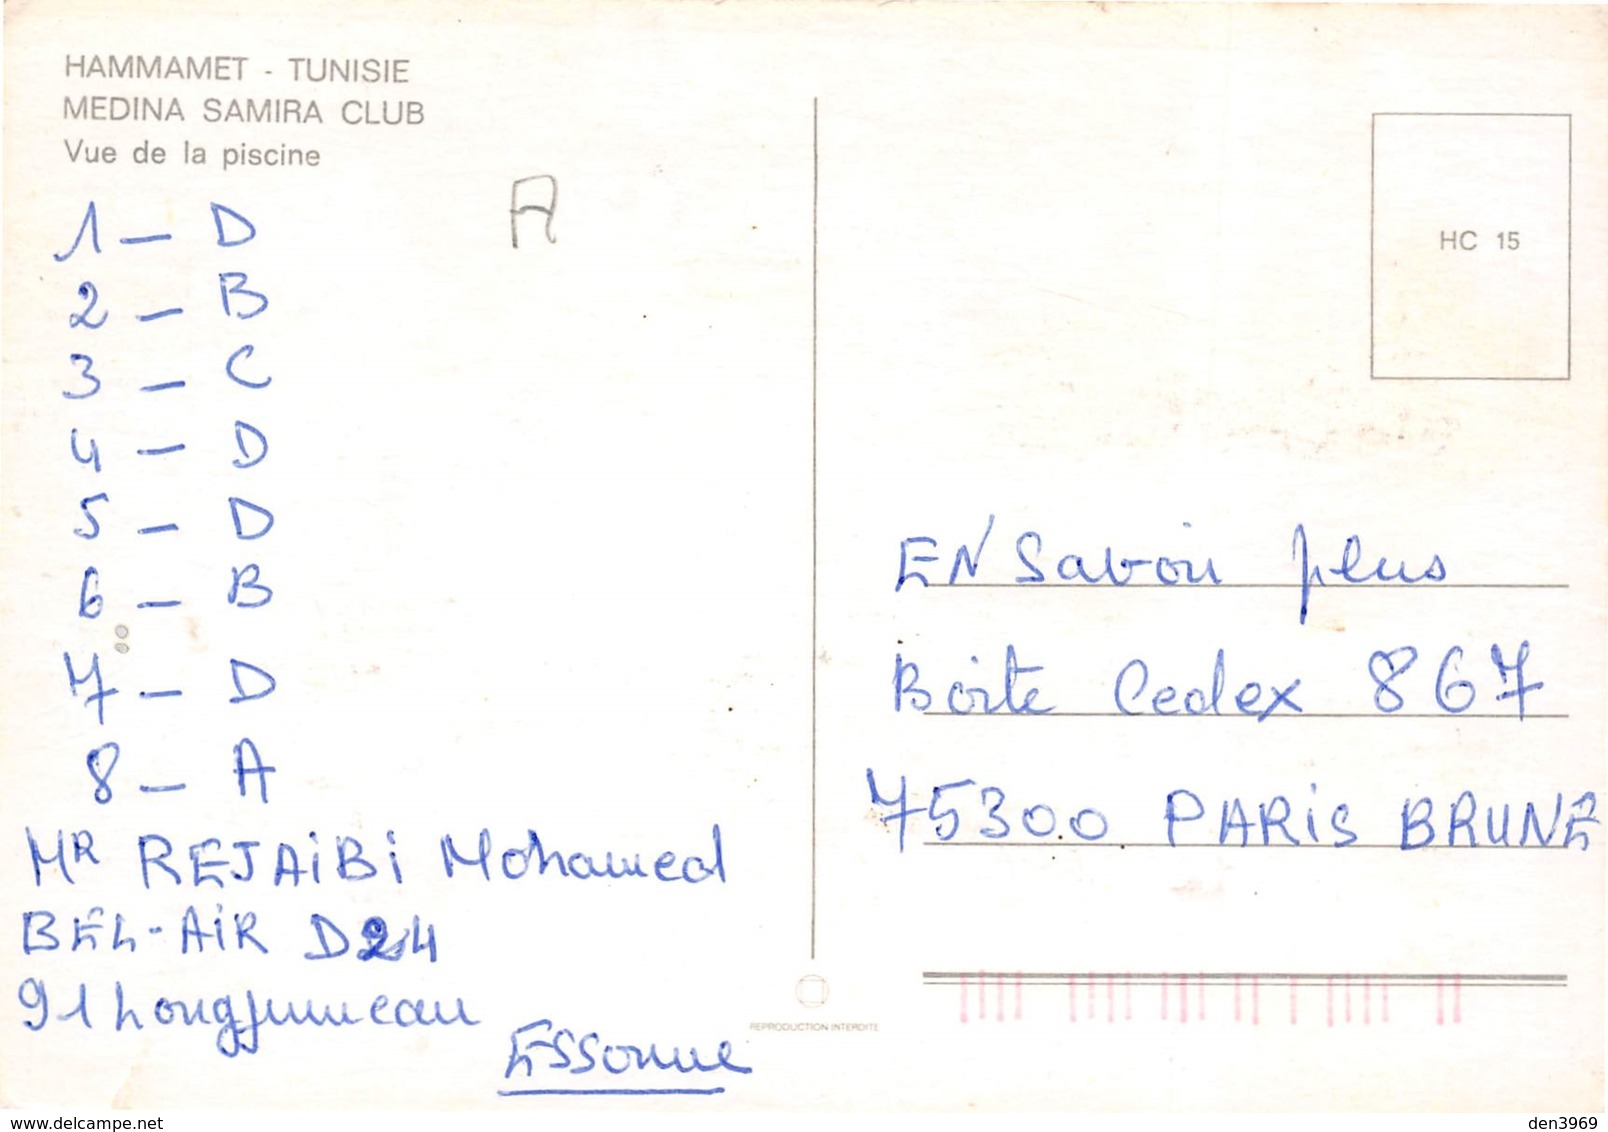 HAMMAMET - TUNISIE
MEDINA SAMIRA CLUB
Vue de la piscine
A
1 - D
2 - B
3 - C
4 - D
5 - D
6 - B
7 - D
8 - A
MR REJAiBi Mohamed
BEL-AiR D24
91 Longjumeau
Essonne
HC 15
EN Savoir plus
Boite Cedex 867
75300 PARiS BRUNE
REPRODUCTION INTERDITE
www.delcampe.net
den3969